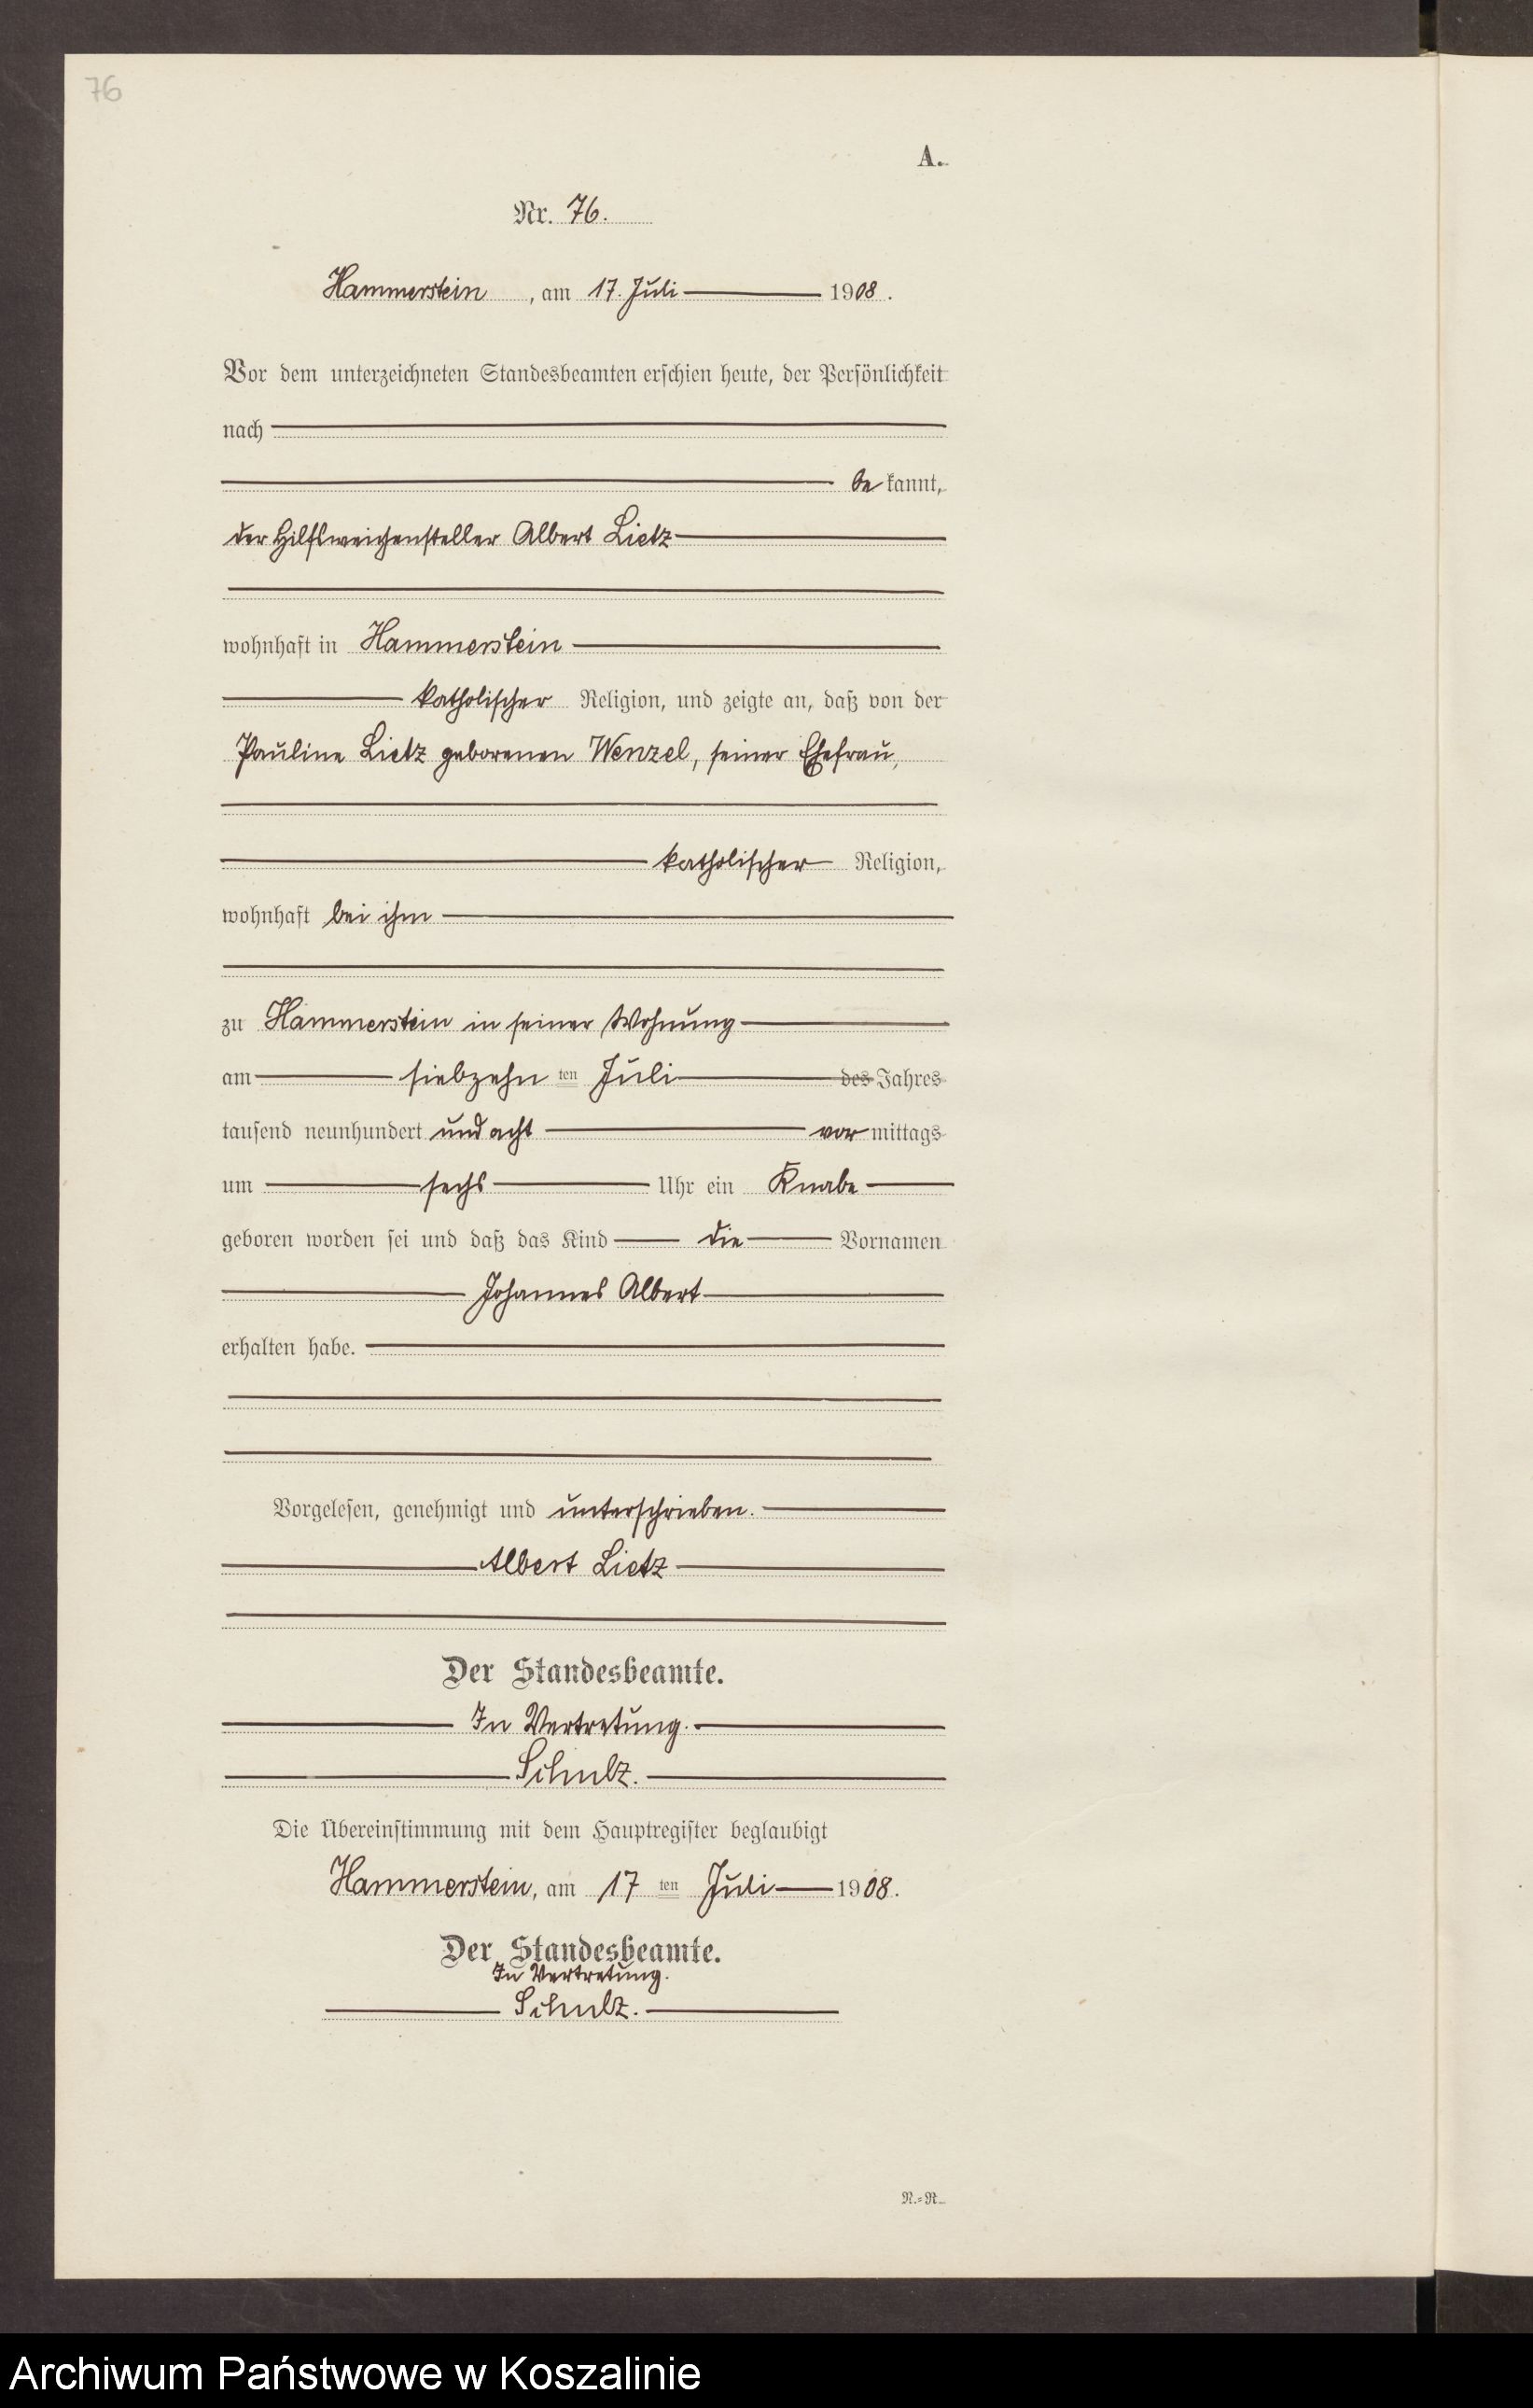 76
A.
Nr. 76.
Hammerstein, am 17. Juli 1908.
Vor dem unterzeichneten Standesbeamten erschien heute, der Persönlichkeit
nach
be kannt,
der Hilfsweichensteller Albert Lietz
wohnhaft in Hammerstein
katholischer Religion, und zeigte an, daß von der
Pauline Lietz geborenen Wenzel, seiner Ehefrau,
katholischer Religion,
wohnhaft bei ihm
zu Hammerstein in seiner Wohnung
am siebzehn ten Juli des Jahres
tausend neunhundert und acht vor mittags
um sechs Uhr ein Knabe
geboren worden sei und daß das Kind die Vornamen
Johannes Albert
erhalten habe.
Vorgelesen, genehmigt und unterschrieben.
Albert Lietz
Der Standesbeamte.
In Vertretung.
Schulz.
Die Übereinstimmung mit dem Hauptregister beglaubigt
Hammerstein, am 17 ten Juli 1908.
Der Standesbeamte.
In Vertretung.
Schulz.
N.=R.
Archiwum Państwowe w Koszalinie